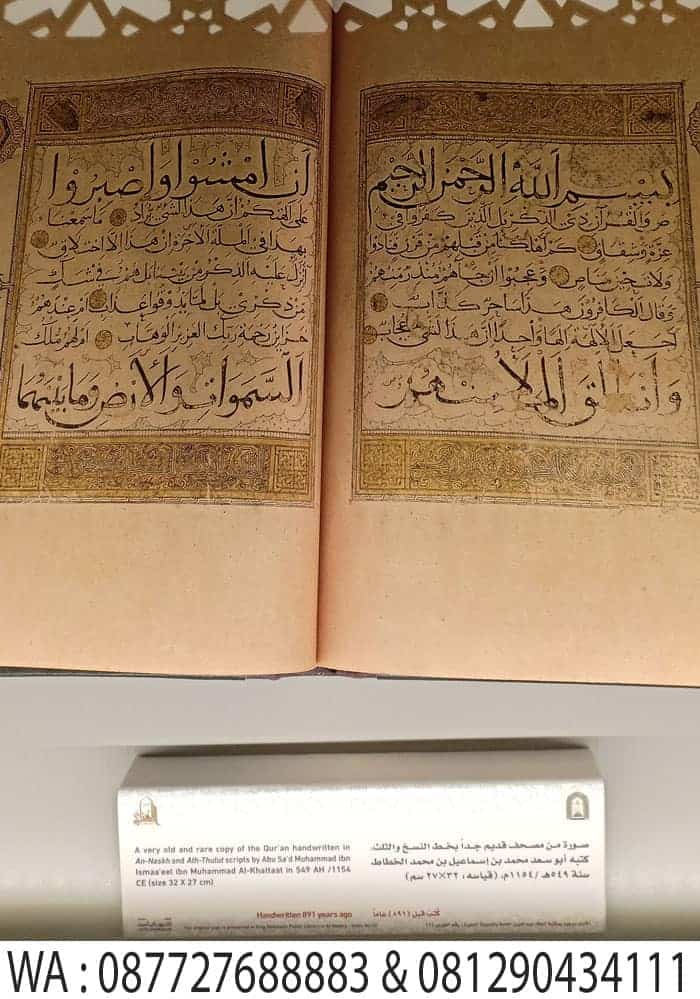 بسم الله الرحمن الرحيم
ص والقرآن ذي الذكر بل الذين كفروا في
عزة وشقاق كم أهلكنا من قبلهم من قرن فنادوا
ولات حين مناص وعجبوا أن جاءهم منذر منهم
وقال الكافرون هذا ساحر كذاب
أجعل الآلهة إلها واحدا إن هذا لشيء عجاب
وانطلق الملأ منهم
أن امشوا واصبروا
على آلهتكم إن هذا لشيء يراد ما سمعنا
بهذا في الملة الآخرة إن هذا إلا اختلاق
أنزل عليه الذكر من بيننا بل هم في شك
من ذكري بل لما يذوقوا عذاب أم عندهم
خزائن رحمة ربك العزيز الوهاب أم لهم ملك
السموات والأرض وما بينهما
A very old and rare copy of the Qur'an handwritten in
An-Naskh and Ath-Thulut scripts by Abu Sa'd Muhammad ibn
Ismaa'eel ibn Muhammad Al-Khattaat in 549 AH /1154
CE (size 32 X 27 cm)
Handwritten 891 years ago
صورة من مصحف قديم جداً بخط النسخ والثلث،
كتبه أبو سعد محمد بن إسماعيل بن محمد الخطاط
سنة ٥٤٩هـ /١١٥٤م، (قياسه، ٣٢×٢٧ سم)
كُتب قبل (٨٩١) عاماً
WA : 087727688883 & 081290434111